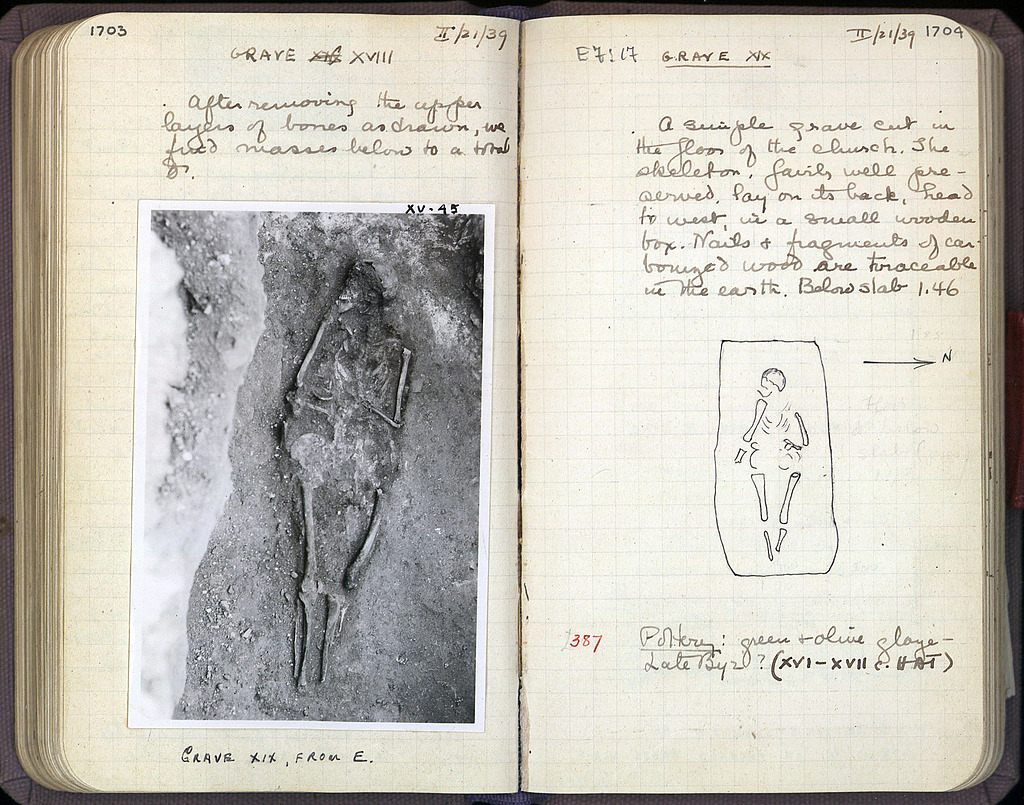 1703
II/21/39
GRAVE XIX XVIII
After removing the upper
layers of bones as drawn, we
find masses below to a total
of.
XV-45
GRAVE XIX, FROM E.
II/21/39 1704
E7:17 GRAVE XIX
A simple grave cut in
the floor of the church. The
skeleton, fairly well pre-
served, lay on its back, head
to west, in a small wooden
box. Nails & fragments of car-
bonized wood are traceable
in the earth. Below slab 1.46
N
387 Pottery: green & olive glaze -
Late Byz ? (XVI-XVII c. HAT)